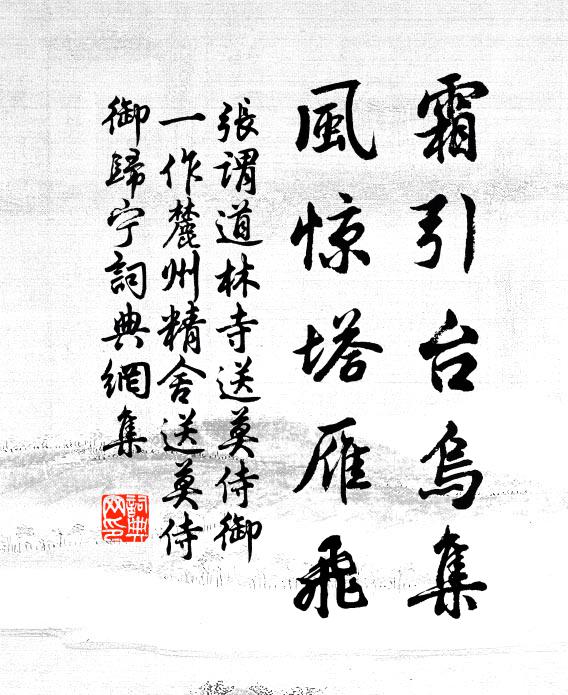 霜引台烏集
風惊塔雁飛
張謂道林寺送莫侍御
一作麓州精舍送莫侍
御歸宁詞典網集
詞典
网印